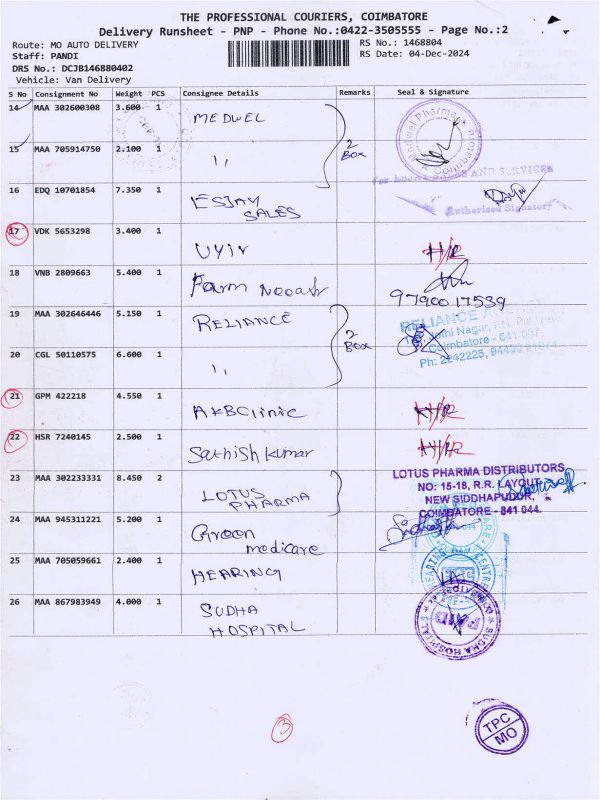 THE PROFESSIONAL COURIERS, COIMBATORE
Delivery Runsheet - PNP - Phone No.:0422-3505555 - Page No.:2
Route: MO AUTO DELIVERY RS No.: 1468804
Staff: PANDI RS Date: 04-Dec-2024
DRS No.: DCJB146880402
Vehicle: Van Delivery
S No Consignment No Weight PCS Consignee Details Remarks Seal & Signature
14 MAA 302600308 3.600 1 MEDWEL 2 Box
15 MAA 705914750 2.100 1 ,,
Coimbatore
16 EDQ 10701854 7.350 1 ESJAY SALES
AND SERVICES
Authorised Signatory
17 VDK 5653298 3.400 1 Uyir H/R
18 VNB 2809663 5.400 1 Farm
9790017539
19 MAA 302646446 5.150 1 RELIANCE 2 Box
RELIANCE
20 CGL 50110575 6.600 1 ,,
Coimbatore - 641 037
Ph: 2242225,
21 GPM 422218 4.550 1 AKBClinic H/R
22 HSR 7240145 2.500 1 Sathish kumar H/R
23 MAA 302233331 8.450 2 LOTUS PHARMA
LOTUS PHARMA DISTRIBUTORS
NO: 15-18, R.R. LAYOUT,
NEW SIDDHAPUDUR,
COIMBATORE - 641 044.
24 MAA 945311221 5.200 1 Green medicare
25 MAA 705059661 2.400 1 HEARING
26 MAA 867983949 4.000 1 SUDHA HOSPITAL
SUDHA HOSPITALS
PAID
3
TPC
MO